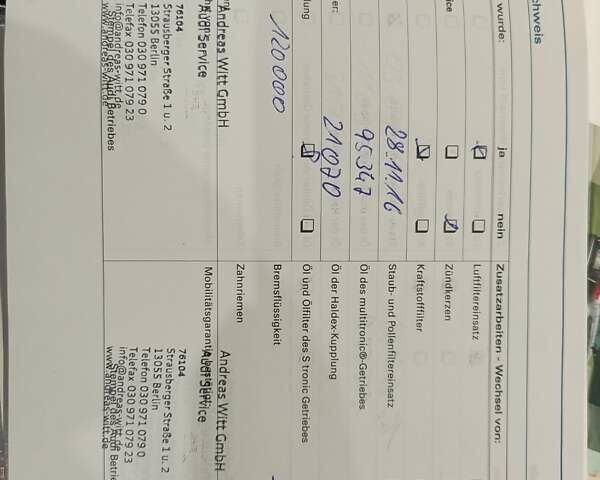 chweis
wurde: ja nein Zusatzarbeiten - Wechsel von:
Luftfiltereinsatz
ice Zündkerzen
Kraftstofffilter
28.11.16 Staub- und Pollenfiltereinsatz
95347 Öl des multitronic®-Getriebes
er: 21070 Öl der Haldex-Kupplung
lung Öl und Ölfilter des S tronic Getriebes
120000 Bremsflüssigkeit
Zahnriemen
Andreas Witt GmbH Andreas Witt GmbH
Audi Service Mobilitätsgarantie Service
76104 76104
Strausberger Straße 1 u. 2 Strausberger Straße 1 u. 2
13055 Berlin 13055 Berlin
Telefon 030 971 079 0 Telefon 030 971 079 0
Telefax 030 971 079 23 Telefax 030 971 079 23
info@andreas-witt.de info@andreas-witt.de
www.andreas-witt.de www.andreas-witt.de
Stempel des Audi Betriebes Stempel des Audi Betrie